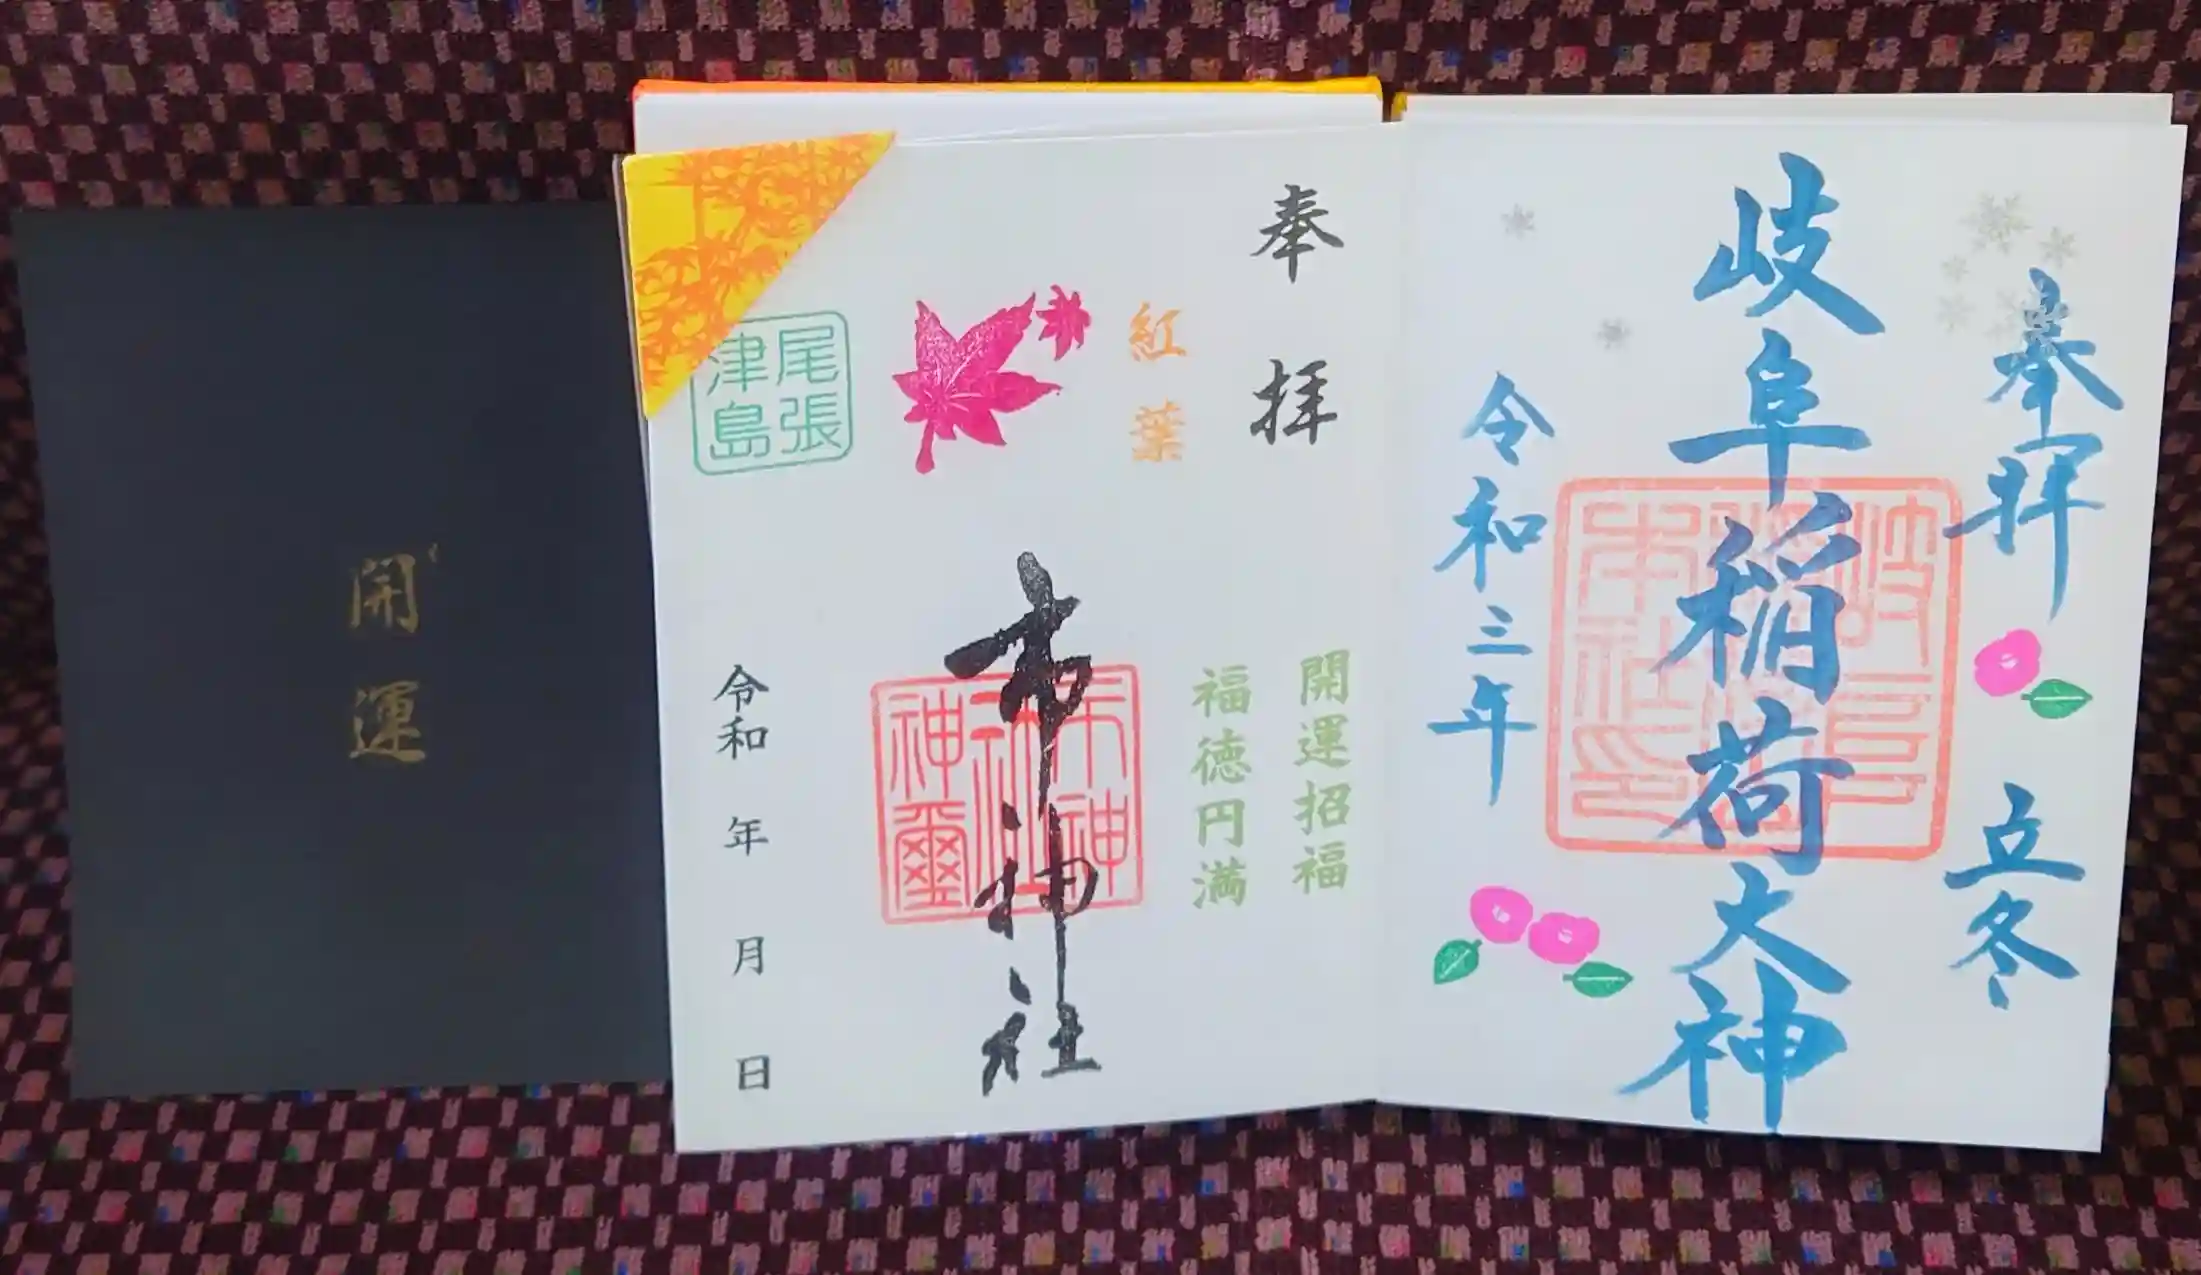 奉拝
立冬
岐阜稲荷大神
令和三年
奉拝
開運招福
福徳円満
紅葉
市神社
市神社神璽
尾張津島
令和 年 月 日
開運